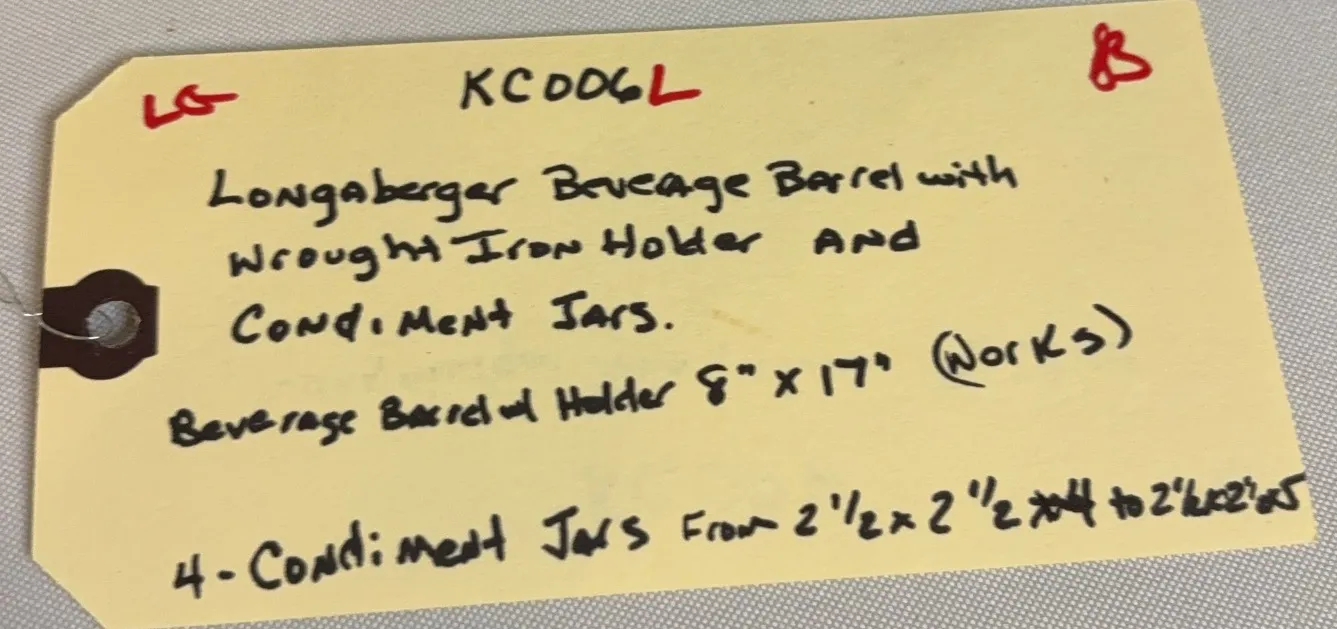 LG KC006L B
Longaberger Beverage Barrel with
Wrought Iron Holder AND
Condiment Jars.
Beverage Barrel w/ Holder 8" x 17" (Works)
4-Condiment Jars From 2 1/2 x 2 1/2 x 4 to 2 1/2 x 2 1/2 x 5